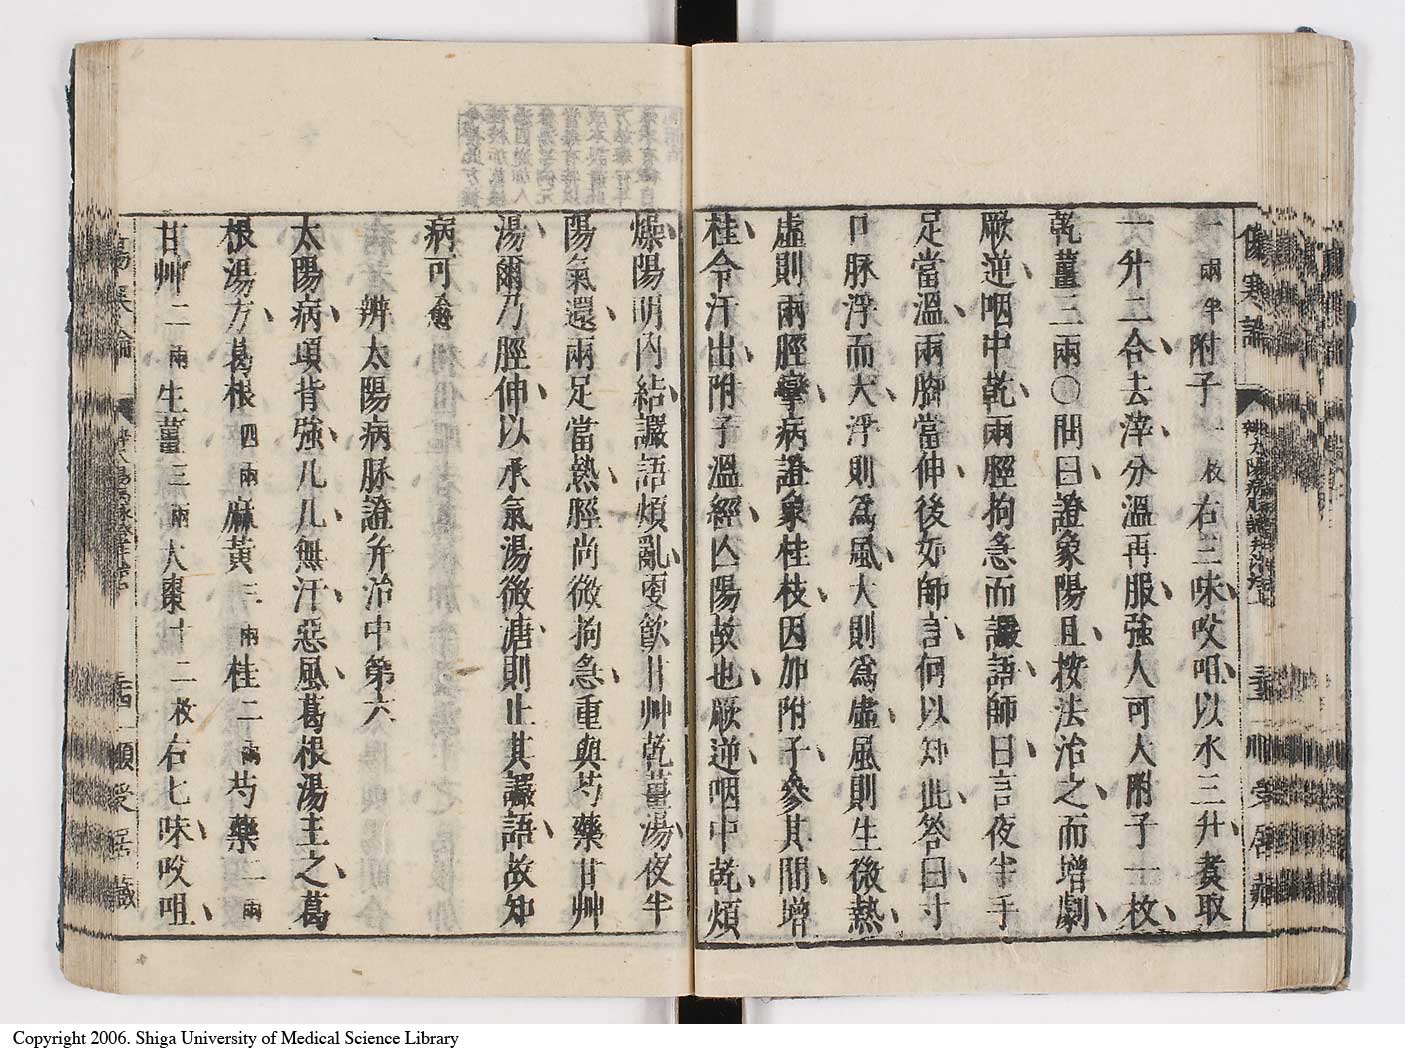 傷寒論
一兩半附子一枚右三味㕮咀以水三升煮取
一升二合去滓分溫再服強人可大附子一枚
乾薑三兩〇問曰證象陽旦按法治之而增劇
厥逆咽中乾兩脛拘急而讝語師曰言夜半手
足當溫兩腳當伸後如師言何以知此答曰寸
口脉浮而大浮則為風大則為虛風則生微熱
虛則兩脛攣病證象桂枝因加附子參其間增
桂令汗出附子溫經亾陽故也厥逆咽中乾煩
燥陽明內結讝語煩亂更飲甘艸乾薑湯夜半
陽氣還兩足當熱脛尚微拘急重與芍藥甘艸
湯爾乃脛伸以承氣湯微溏則止其讝語故知
病可愈
辨太陽病脉證并治中第六
太陽病項背強几几無汗惡風葛根湯主之葛
根湯方葛根四兩麻黃三兩桂二兩芍藥二兩
甘艸二兩生薑三兩大棗十二枚右七味㕮咀
Copyright 2006. Shiga University of Medical Science Library